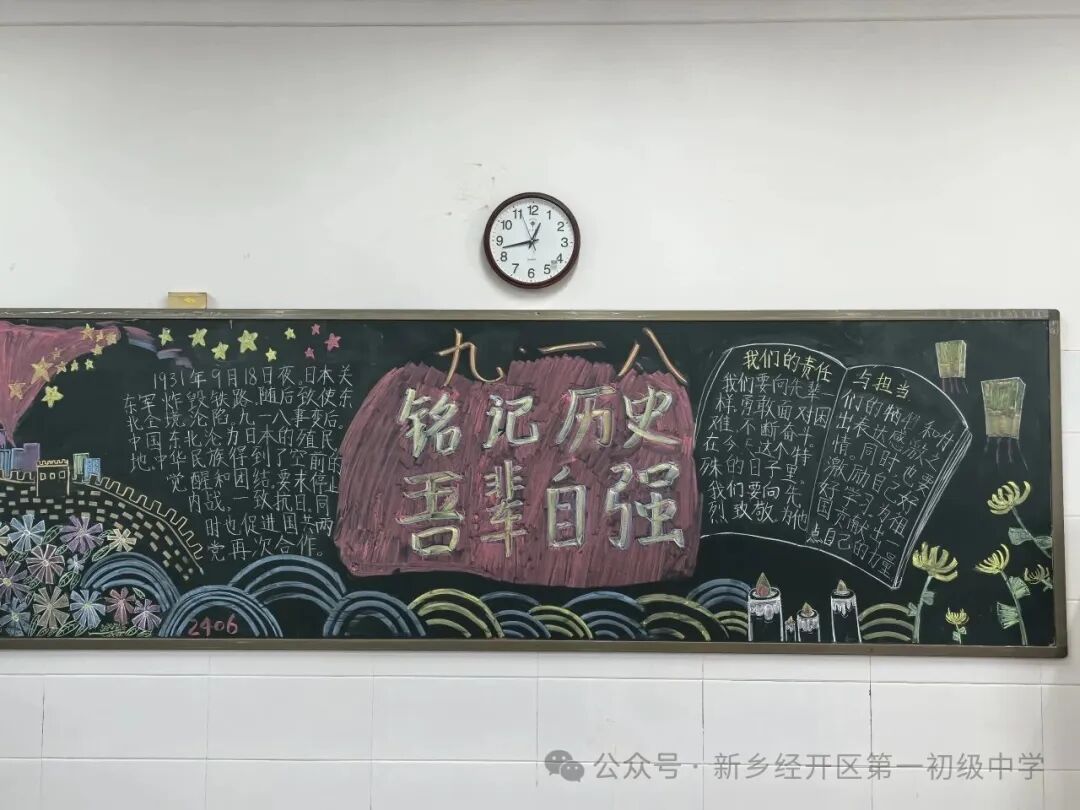 12
1
2
3
4
5
6
7
8
9
10
11
九·一八
铭记历史
吾辈自强
1931年9月18日夜,日本关
东军炸毁铁路,随后铁东
北全境沦陷,九一八事变后。
中国东北沦为日本的殖民
地。中华民族得到了空前的
觉醒和团结。
内战,一致要抗日,停止
时也促进国共两
党再次合作。
我们的责任
与担当
我们要向先辈
样,勇敢面对困
难,不断奋斗。
在今日这个特
殊的日子里,
我们要向先
烈致敬,为他
们的
和付
出表
情。同时也要
激励自己好
好学习,为祖
国贡献出一
点自己的力量
2406
公众号·新乡经开区第一初级中学